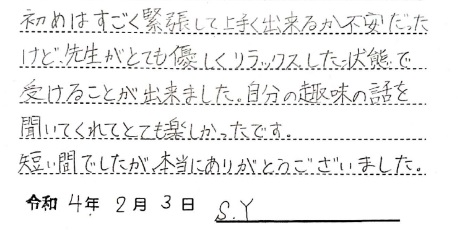 初めはすごく緊張して上手く出来るか不安だった
けど、先生がとても優しくリラックスした状態で
受けることが出来ました。自分の趣味の話を
聞いてくれてとても楽しかったです。
短い間でしたが、本当にありがとうございました。
令和 4年 2月 3日 S.Y